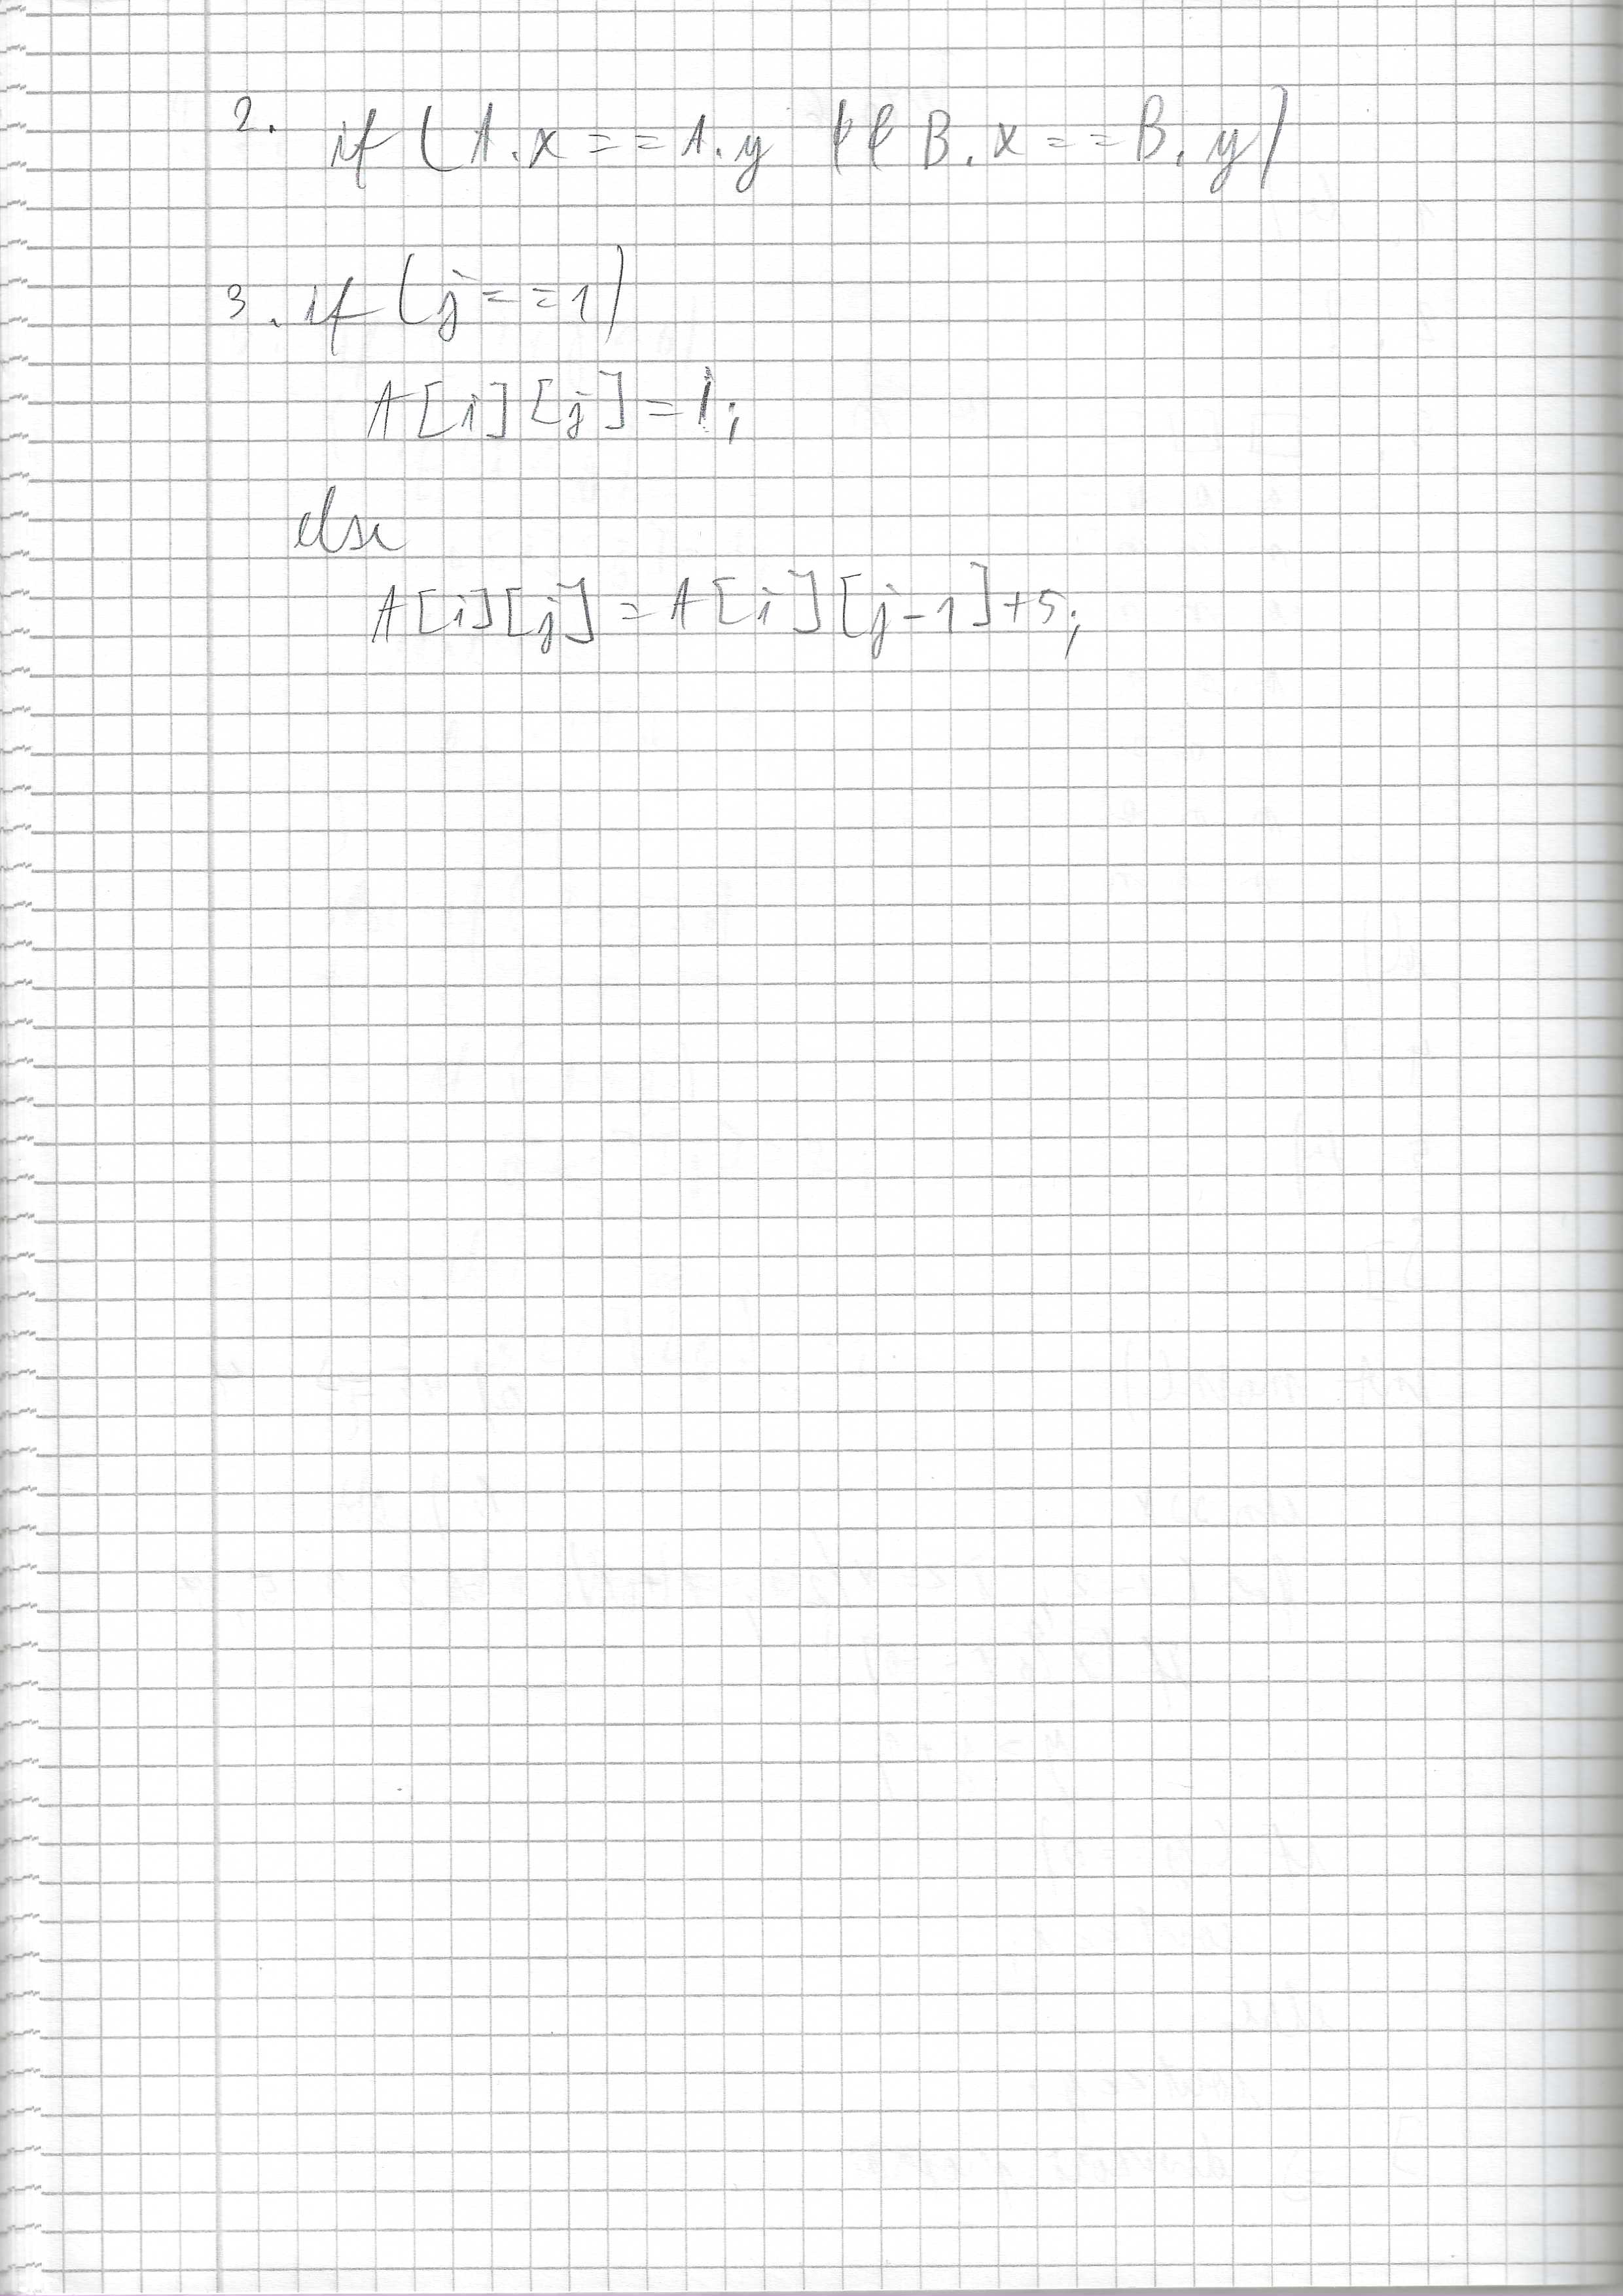 2. if (A.x==A.y && B.x==B.y)
3. if (j==1)
A[i][j]=i;
else
A[i][j]=A[i][j-1]+5;